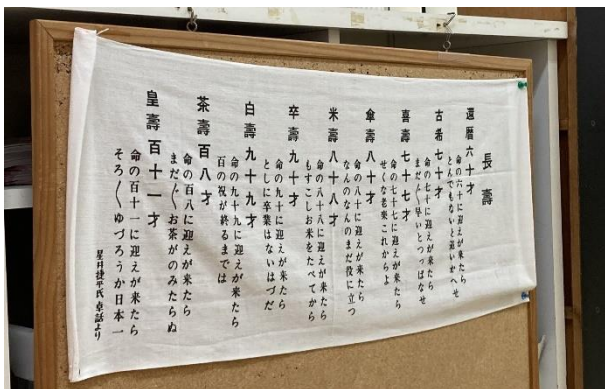 長壽
還暦六十才
命の六十に迎えが来たら
とんでもないと追いかへせ
古希七十才
命の七十に迎えが来たら
まだ〳〵早いとつっぱなせ
喜壽七十七才
命の七十七に迎えが来たら
せくな老楽これからよ
傘壽八十才
命の八十に迎えが来たら
なんのなんのまだ役に立つ
米壽八十八才
命の八十八に迎えが来たら
もすこしお米をたべてから
卒壽九十才
命の九十に迎えが来たら
としに卒業はないはづだ
白壽九十九才
命の九十九に迎えが来たら
百の祝が終るまでは
茶壽百八才
命の百八に迎えが来たら
まだ〳〵お茶がのみたらぬ
皇壽百十一才
命の百十一に迎えが来たら
そろ〳〵ゆづろうか日本一
星井捷平氏 卓話より